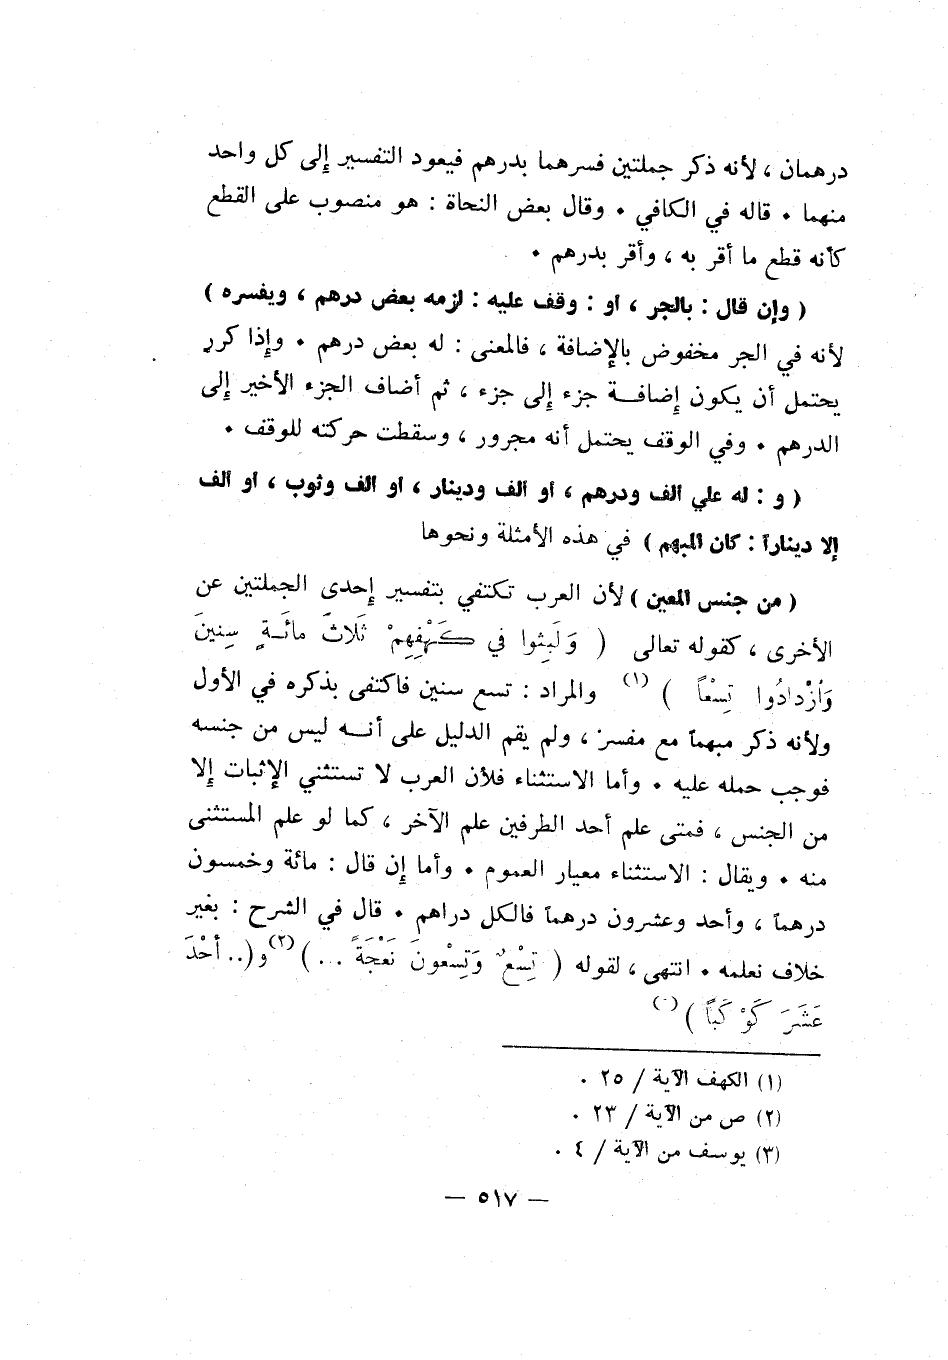 درهمان ، لأنه ذكر جملتين فسرهما بدرهم فيعود التفسير إلى كل واحد
منهما ٠ قاله في الكافي ٠ وقال بعض النحاة : هو منصوب على القطع
كأنه قطع ما أقر به ، وأقر بدرهم ٠
( وإن قال : بالجر ، او : وقف عليه : لزمه بعض درهم ، ويفسره )
لأنه في الجر مخفوض بالإضافة ، فالمعنى : له بعض درهم ٠ وإذا كرر
يحتمل أن يكون إضافة جزء إلى جزء ، ثم أضاف الجزء الأخير إلى
الدرهم ٠ وفي الوقف يحتمل أنه مجرور ، وسقطت حركته للوقف ٠
( و : له علي الف ودرهم ، او الف ودينار ، او الف وثوب ، او الف
إلا ديناراً : كان المبهم ) في هذه الأمثلة ونحوها
( من جنس المعين ) لأن العرب تكتفي بتفسير إحدى الجملتين عن
الأخرى ، كقوله تعالى ( وَلَبِثُوا في كَهْفِهِمْ ثَلَاثَ مائَةٍ سِنِينَ
وَٱزْدادُوا تِسْعاً ) (١) والمراد : تسع سنين فاكتفى بذكره في الأول
ولأنه ذكر مبهماً مع مفسر ، ولم يقم الدليل على أنه ليس من جنسه
فوجب حمله عليه ٠ وأما الاستثناء فلأن العرب لا تستثني الإثبات إلا
من الجنس ، فمتى علم أحد الطرفين علم الآخر ، كما لو علم المستثنى
منه ٠ ويقال : الاستثناء معيار العموم ٠ وأما إن قال : مائة وخمسون
درهماً ، وأحد وعشرون درهماً فالكل دراهم ٠ قال في الشرح : بغير
خلاف نعلمه ٠ انتهى ، لقوله ( تِسْعٌ وَتِسْعونَ نَعْجَةً ... ) (٢) و(.. أَحْدَ
عَشَرَ كَوْكَباً )
(١) الكهف الآية / ٢٥ ٠
(٢) ص من الآية / ٢٣ ٠
(٣) يوسف من الآية / ٤ ٠
— ٥١٧ —